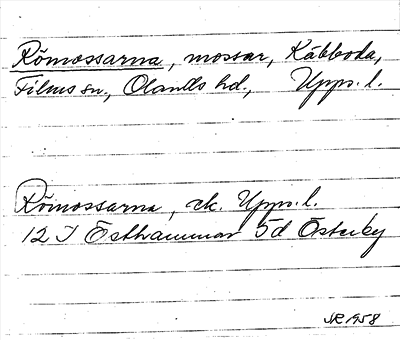 Römossarna, mossar, Käbboda,
Films sn., Olands hd., Upps. l.
Römossarna, ek. Upps. l.
12 I Östhammar 5d Österby
SR 1958